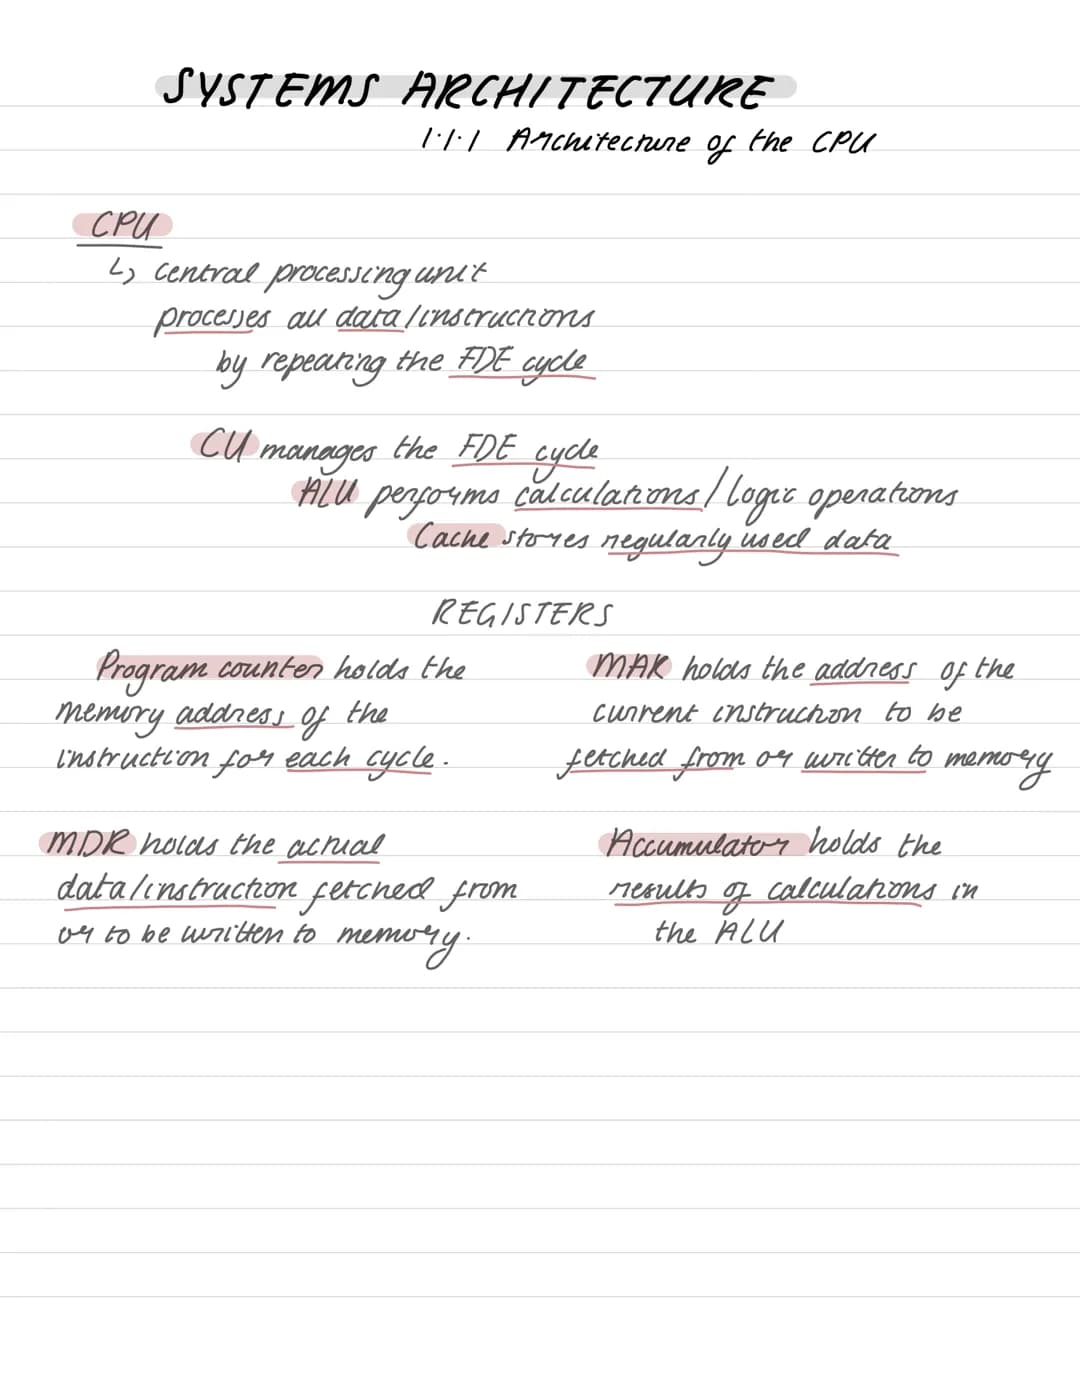 SYSTEMS ARCHITECTURE
1.1.1 Architecture of the CPU
CPU
↳ central processing unit
processes all data/instructions
by repeating the FDE cycle
CU manages the FDE cycle
ALU performs calculations/logic operations
Cache stores regularly used data
REGISTERS
Program counter holds the
memory address of the
instruction for each cycle.
MAR holds the address of the
current instruction to be
fetched from or written to memory
MDR holds the actual
data/instruction fetched from
or to be written to memory.
Accumulator holds the
results of calculations in
the ALU